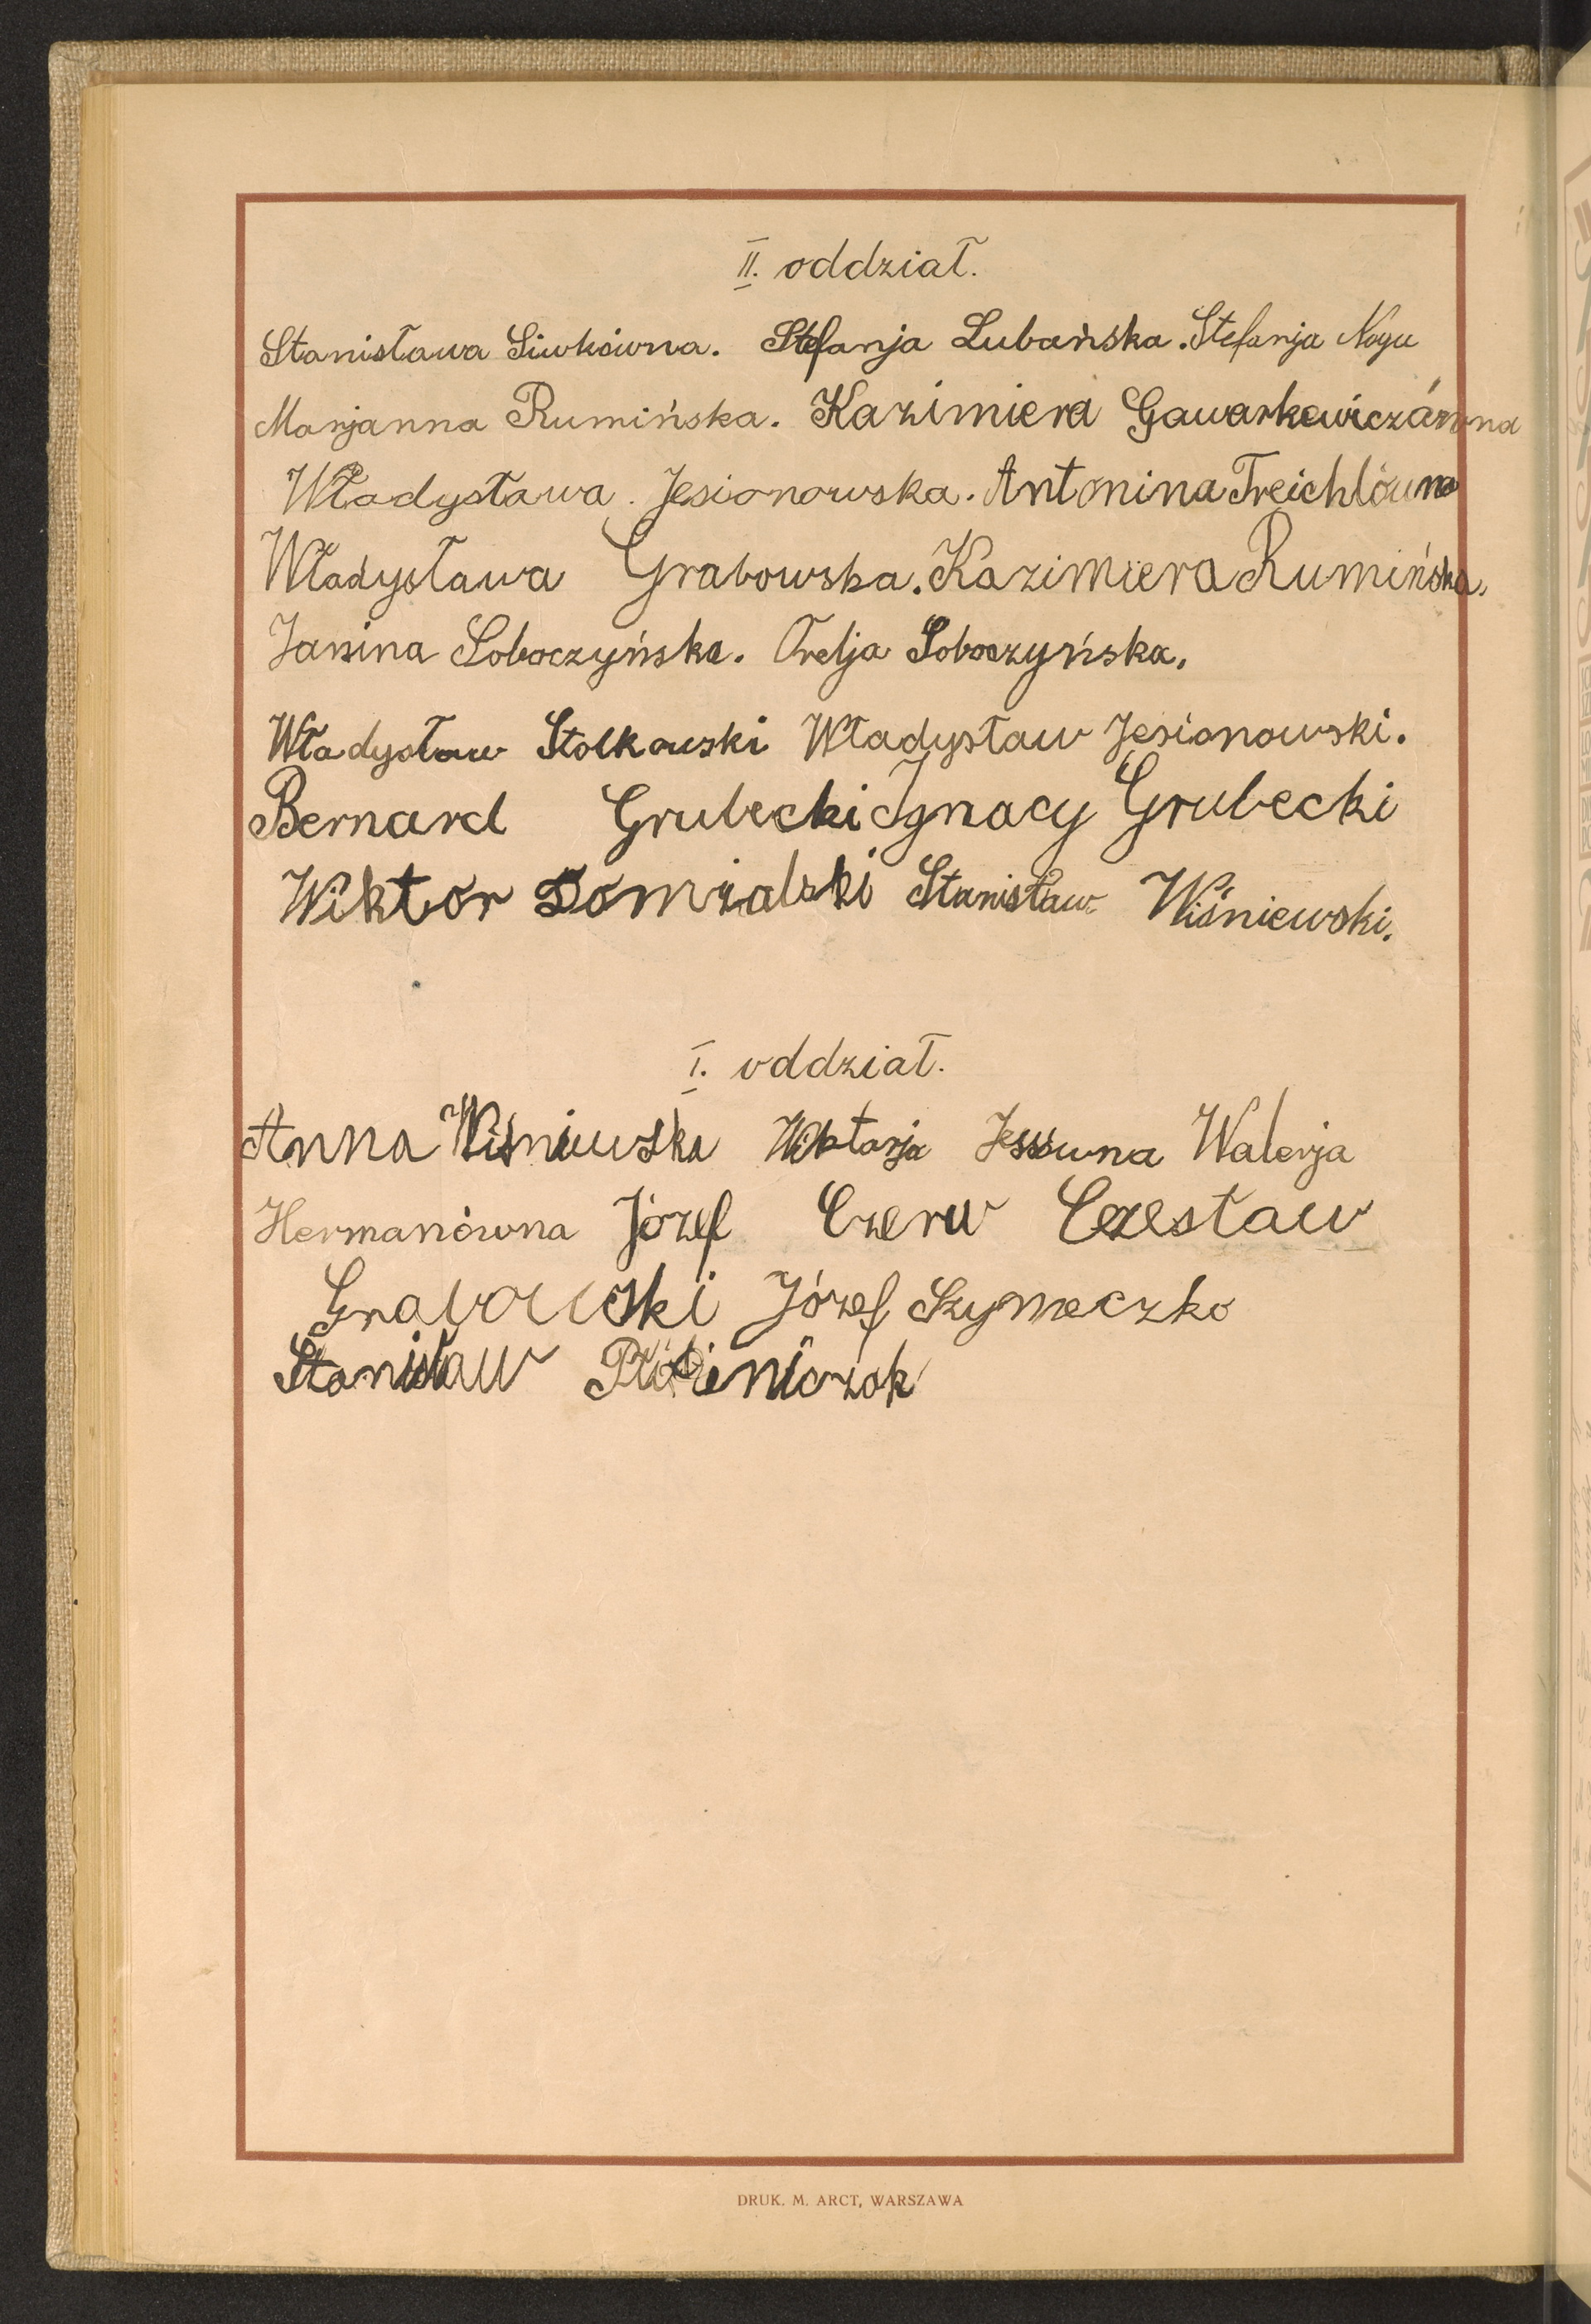 II. oddział.
Stanisława Siwkówna. Stefanja Lubańska. Stefanja Noga
Marjanna Rumińska. Kazimiera Gawarkewiczówna
Władysława Jesionowska. Antonina Treichlówna
Władysława Grabowska. Kazimiera Rumińska.
Janina Soboczyńska. Ofelja Soboczyńska.
Władysław Stolkowski Władysław Jesionowski.
Bernard Grubecki Ignacy Grubecki
Wiktor Domżalski Stanisław Wiśniewski.
I. oddział.
Anna Wiśniewska Wiktorja Walerja
Hermanówna Józef Czerw Czesław
Grabowski Józef Szymeczko
Stanisław
DRUK. M. ARCT, WARSZAWA